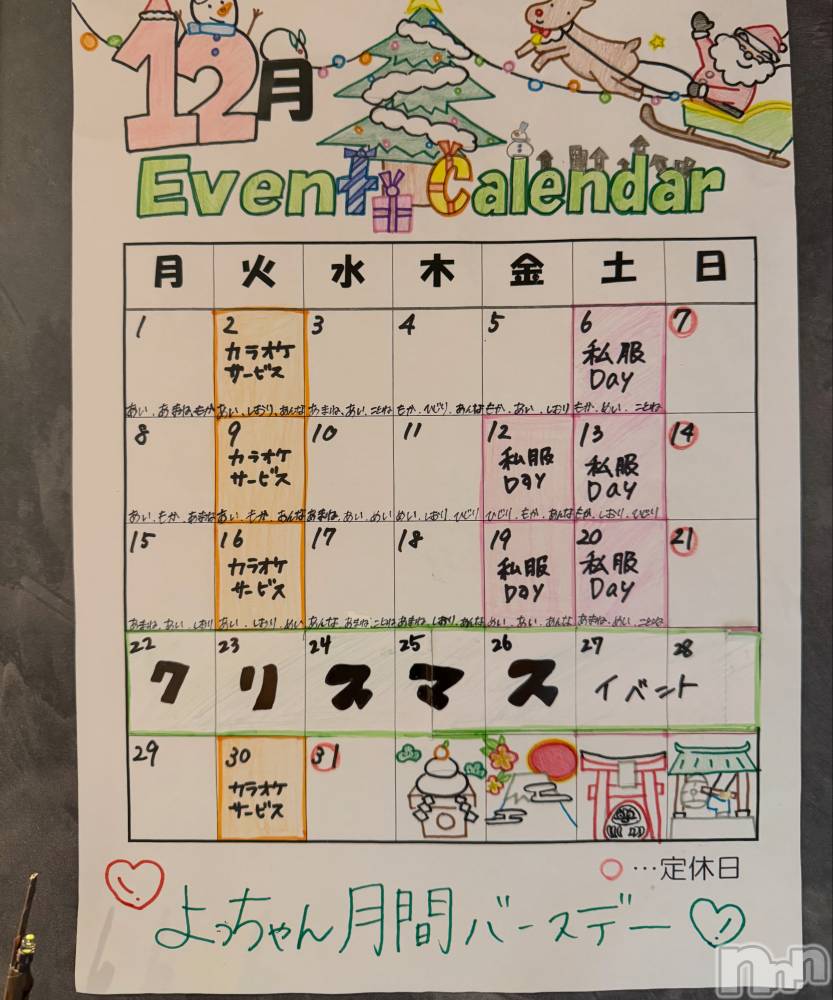 12月
Event Calendar
月 火 水 木 金 土 日
1 2 3 4 5 6 7
カラオケ サービス
私服 Day
あい、あまね、もか あい、しおり、あんな あまね、あい、ことね もか、ひじり、あんな もか、あい、しおり もか、めい、ことね
8 9 10 11 12 13 14
カラオケ サービス
私服 Day 私服 Day
あい、もか、あまね あい、もか、あんな あまね、あい、めい めい、しおり、ひじり ひじり、もか、あんな もか、しおり、ひじり
15 16 17 18 19 20 21
カラオケ サービス
私服 Day 私服 Day
あまね、あい、しおり あい、しおり、めい あんな、あまね、ことね あまね、しおり、あんな めい、あい、あんな あまね、めい、ことね
22 23 24 25 26 27 28
クリスマス イベント
29 30 31
カラオケ サービス
○…定休日
よっちゃん月間バースデー
nnn